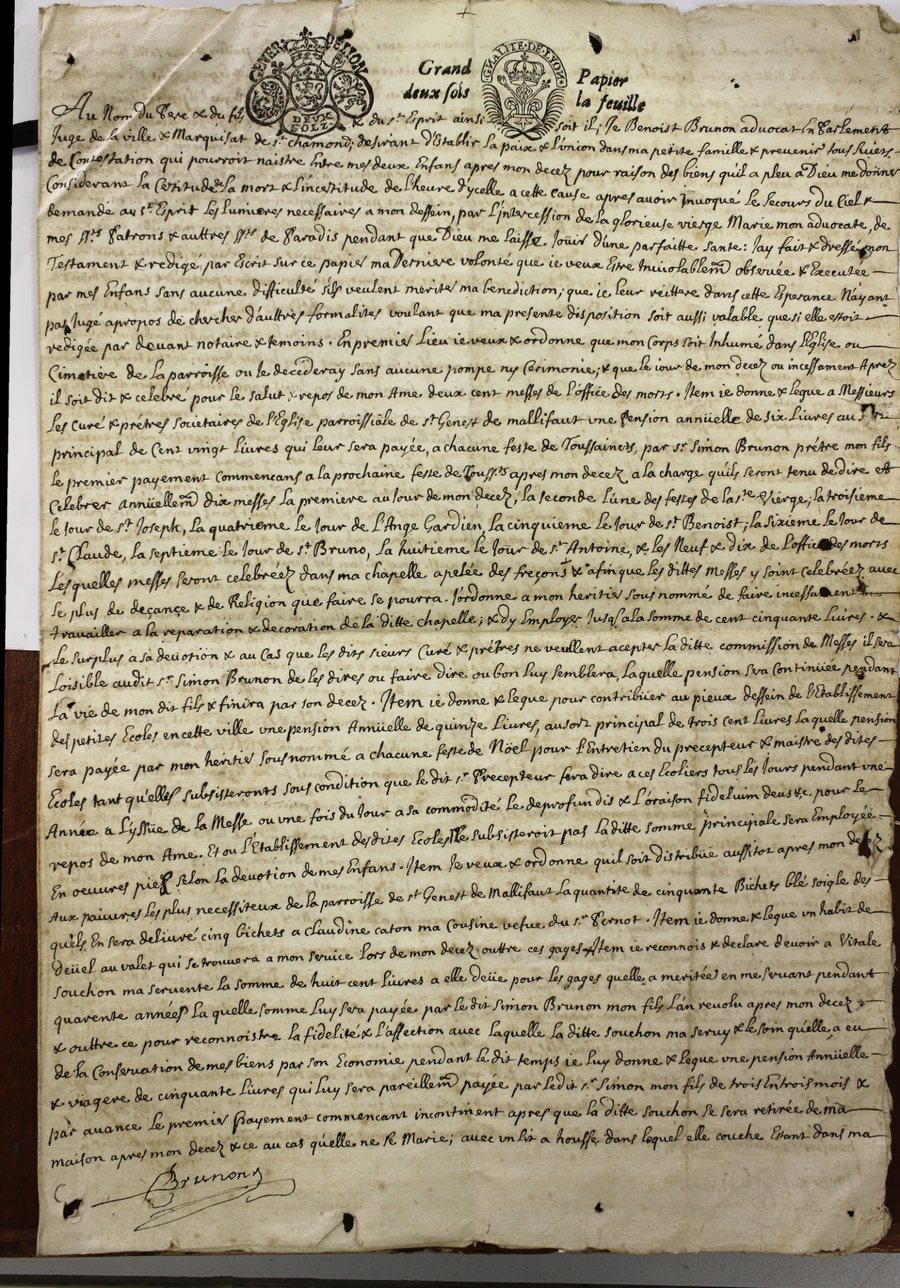 GENER. DE LYON
DEUX SOLZ
GNALITE · DE · LYON
Grand Papier
deux sols la feuille
Au Nom du Pere & du fils & du st Esprit ainsi soit il; Je Benoist Brunon advocat En Parlement &
Juge de la ville & Marquisat de st chamond, desirant d'Establir la paix & l'union dans ma petite famille & prevenir tous sujets
de Contestation qui pourroit naistre Entre mes deux Enfans apres mon decez pour raison des biens quil a pleu a Dieu me donner
Considerant la Certitude de la mort & l'incertitude de l'heure d'ycelle a cette cause apres avoir invoqué le secours du Ciel &
demandé au st Esprit les lumieres necessaires a mon dessein, par l'intercession de la glorieuse vierge Marie mon advocate, de
mes Sts Patrons & auttres Sts de Paradis pendant que Dieu me laisse Joüir d'une parfaitte sante: Jay fait & dressé mon
Testament & redigé par Escrit sur ce papier ma Derniere volonté que je veux Estre Inviolablemt observée & Executée
par mes Enfans sans aucune difficulté sils veulent meriter ma benediction; que je leur reittere dans cette Esperance N'ayant
pas Jugé apropos de chercher d'auttres formalites voulant que ma presente disposition soit aussi valable que si elle estoit
redigée par devant notaire & temoins. En premier Lieu je veux & ordonne que mon Corps soit Inhumé dans l'Eglise ou
Cimetiere de la parroisse ou je decederay sans aucune pompe ny Cerimonie; & que le jour de mon decez ou incessament Aprez
il soit dit & celebré pour le salut & repos de mon Ame deux cent messes de l'office des morts. Item je donne & legue a Messieurs
Les Curé & prétres societaires de l'Eglise parroissiale de st Genest de mallifaut une Pension annüelle de six Livres au sort
principal de Cent vingt livres qui leur sera payée, a chacune feste de Toussaincts, par sr Simon Brunon prétre mon fils
le premier payement Commencans a la prochaine feste de Toussts apres mon decez a la charge quils seront tenu de dire et
Celebrer Annüellemt dix messes la premiere au Jour de mon decez; la seconde l'une des festes de la ste Vierge; la troisieme
le Jour de st Joseph, la quatrieme le Jour de l'Ange Gardien, la cinquieme le Jour de st Benoist; la sixieme le Jour de
st Claude, la septieme le Jour de st Bruno, la huitieme le Jour de st Antoine, & les Neuf & dix de l'office des morts
Les quelles messes seront celebréez dans ma chapelle apelée des freçons & afin que les dittes Messes y soint Celebréez avec
le plus de deçançe & de Religion que faire se pourra. J'ordonne a mon heritier sous nommé de faire incessament
travailler a la reparation & decoration de la ditte chapelle; & d'y Employer Jusqu'a la somme de cent cinquante livres. &
Le surplus a sa devotion & au Cas que les dits sieurs Curé & prétres ne veullent acepter la ditte commission de Messes il sera
Loisible audit sr Simon Brunon de les dires ou faire dire ou bon luy semblera, la quelle pension sera Continüee pendant
la vie de mon dit fils & finira par son decez. Item je donne & legue pour contribüer au pieux dessein de l'Establissement
des petites Ecoles en cette ville une pension Annüelle de quinze Livres, au sort principal de trois cent Livres la quelle pension
sera payée par mon heritier sous nommé a chacune feste de Nöel pour l'Entretien du precepteur & maistre des dites
Ecoles tant qu'elles subsisteronts sous condition que le dit sr Precepteur fera dire a ces Ecoliers tous les Jours pendant une
Année a l'yssüe de la Messe ou une fois du Jour a sa commodité le deprofundis & l'oraison fidelium deus &c. pour le
repos de mon Ame. Et ou l'Etablissement des dites Ecoles ne subsisteroit pas la ditte somme principale sera Employée
En oeuvres pies selon la devotion de mes Enfans. Item Je veux & ordonne quil soit distribüé aussitot apres mon decez
Aux pauvres les plus necessiteux de la parroisse de st Genest de Mallifaut la quantité de cinquante Bichets blé soigle des
quils En sera delivré cinq bichets a Claudine Caton ma Cousine vefue du sr Pernot. Item je donne & legue un habit de
Deüel au valet qui se trouvera a mon service lors de mon decez outtre ces gages. Item je reconnois & declare devoir a Vitale
souchon ma servente la somme de huit cent Livres a elle deüe pour les gages quelle a meritée en me servant pendant
quarente années la quelle somme luy sera payée par le dit Simon Brunon mon fils l'an revolu apres mon decez
& outtre ce pour reconnoistre la fidelité & l'affection avec laquelle la ditte souchon ma servy & le soin qu'elle a eu
de la Conservation de mes biens par son Economie pendant le dit temps je luy donne & legue une pension Annüelle
& viagere de cinquante Livres qui luy sera pareillemt payée par ledit sr Simon mon fils de trois En trois mois &
par avance le premier Payement commencant incontinent apres que la ditte souchon se sera retirée de ma
maison apres mon decez & ce au cas qu'elle ne se Marie; avec un Lit a housse dans lequel elle couche Estant dans ma
Brunon